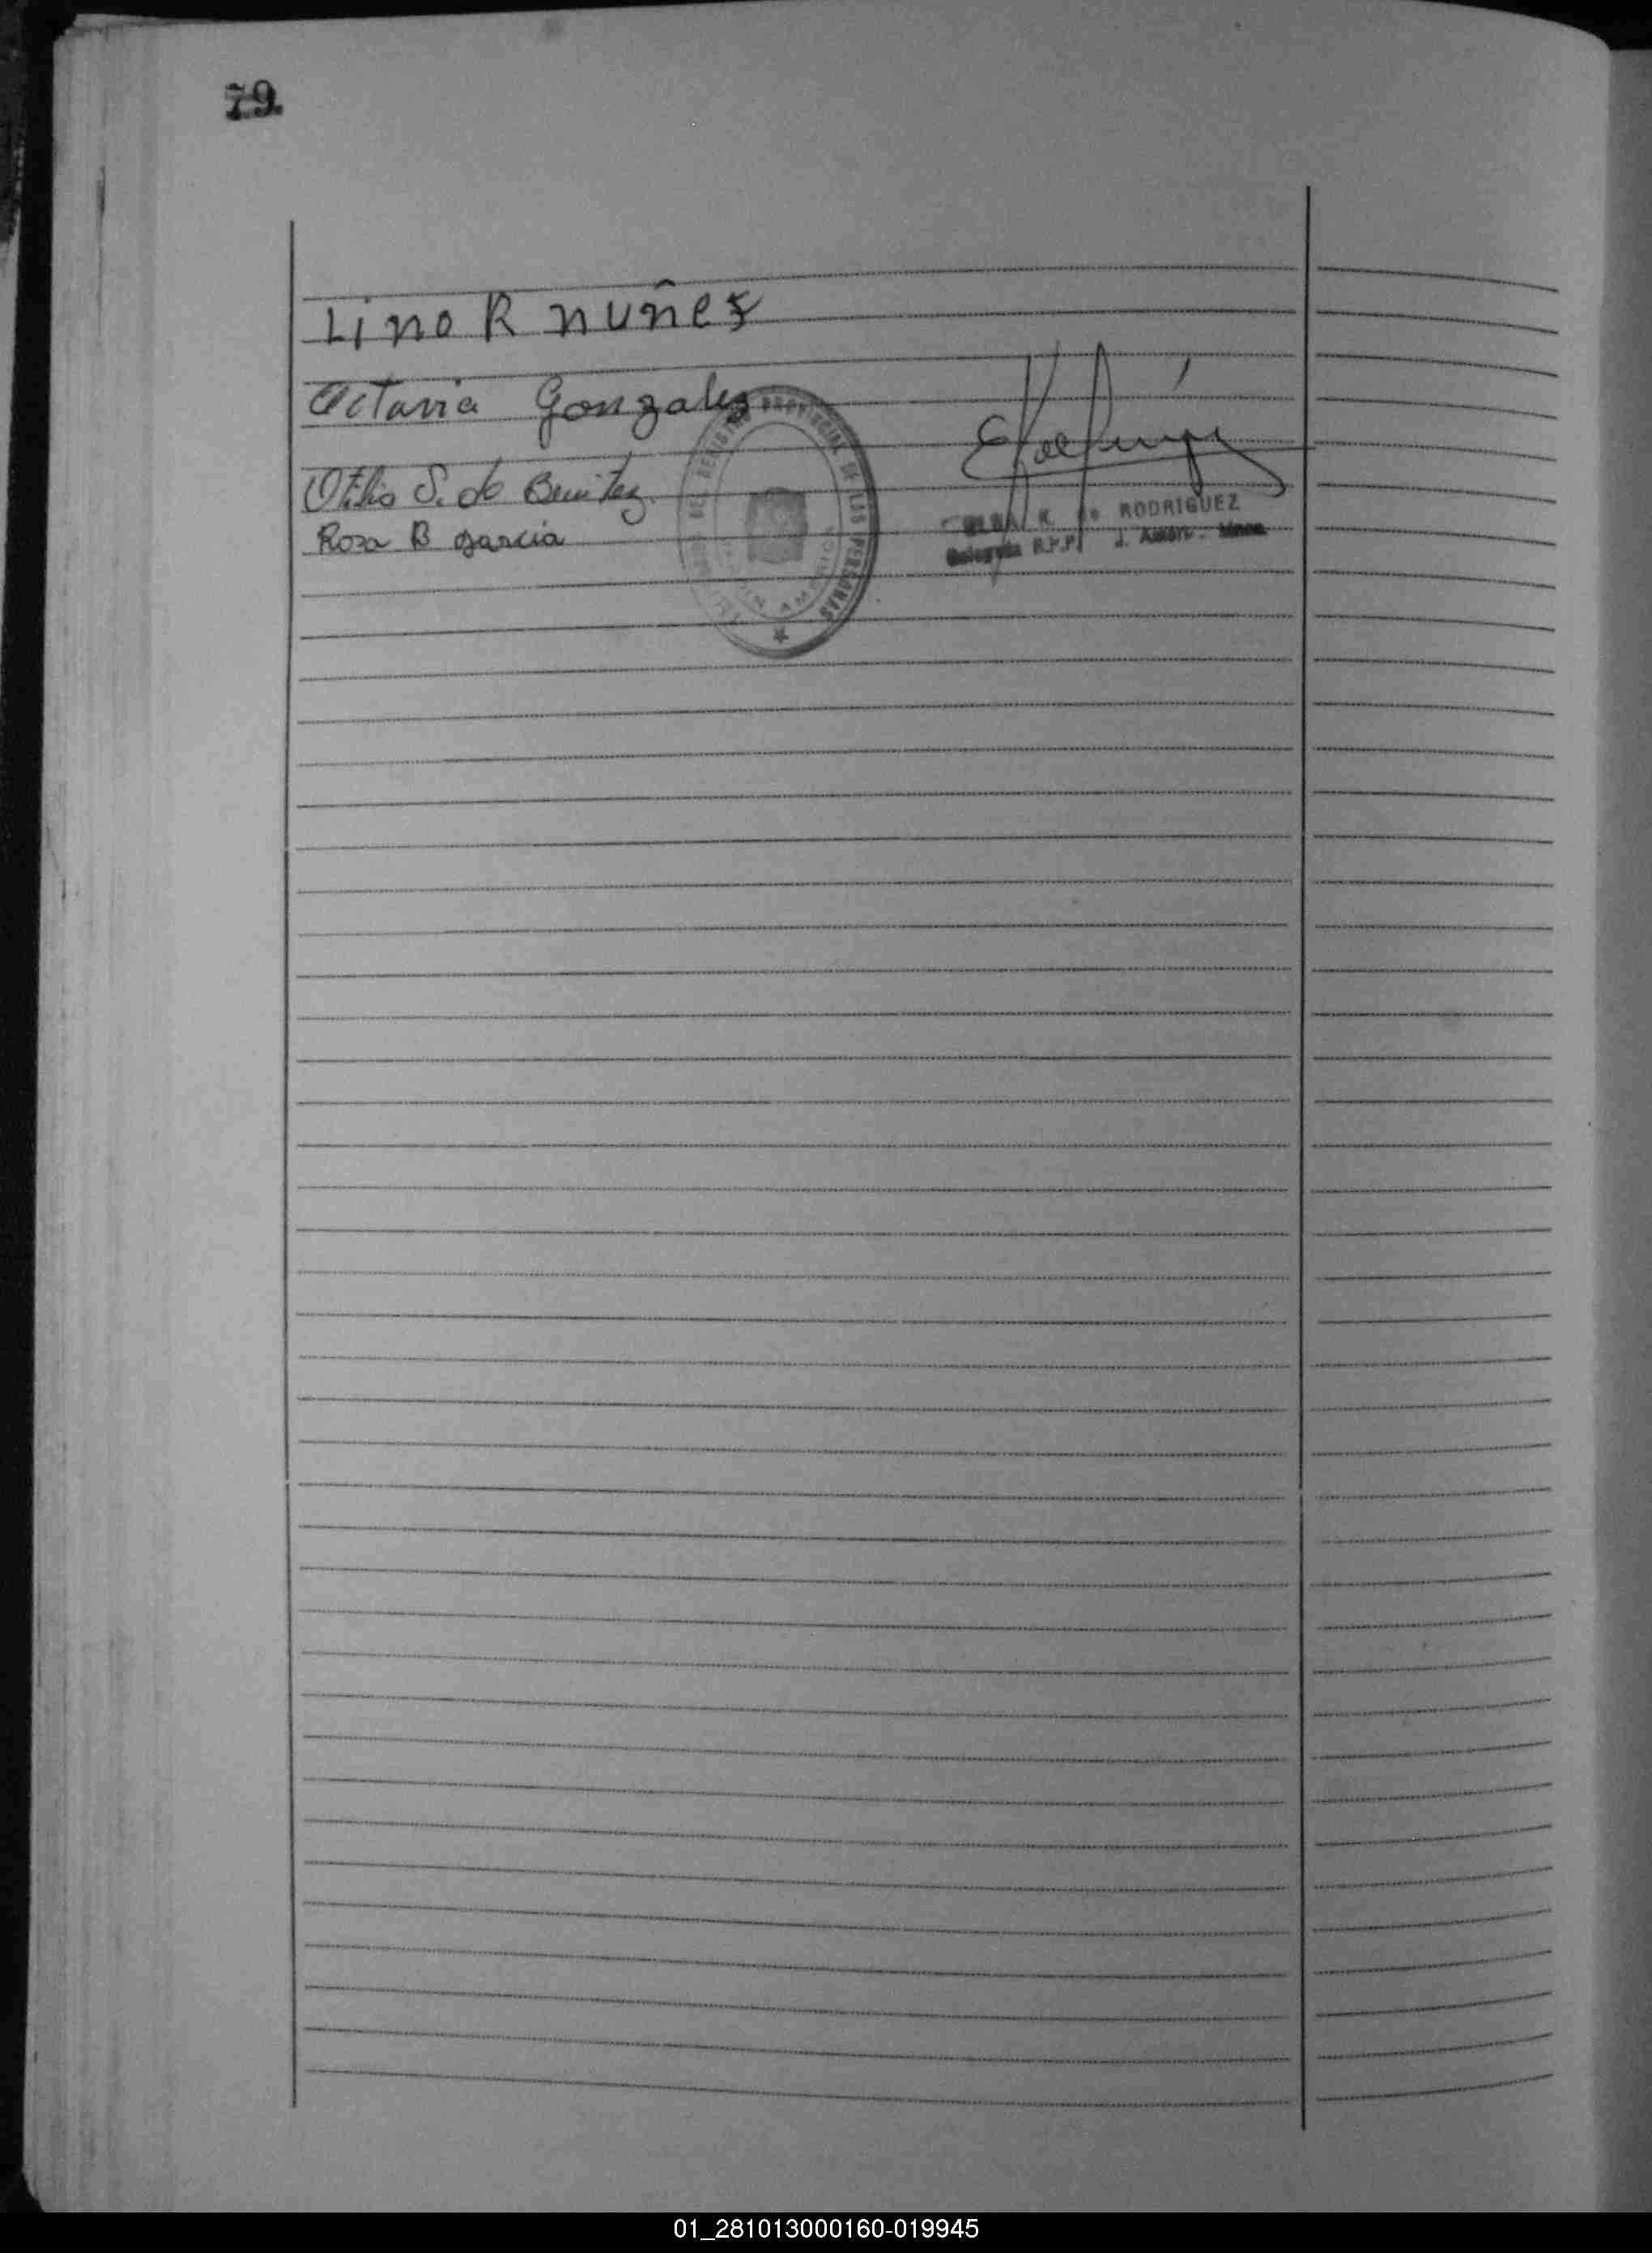 79.
Lino R nuñez
Octavia Gonzalez
Otilia S. de Benitez.
Rosa B garcia
DEL REGISTRO PROVINCIAL DE LAS PERSONAS
K. de RODRIGUEZ
Delegada R.P.P.
01_281013000160-019945